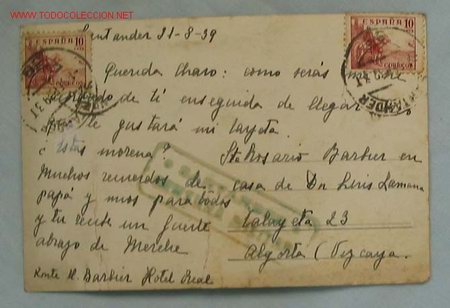 WWW.TODOCOLECCION.NET
ESPAÑA 10
ESPAÑA 10
Santander 21-8-39
Querida Charo: como verás me he
de ti enseguida de llegar
te gustará mi tarjeta.
¿Estás morena?
Muchos recuerdos de
papá y míos para todos
y tu recibe un fuerte
abrazo de Merche
Srta Rosario Barbier en
casa de Dn Luis Lamana
23
Algorta (Vizcaya.
Barbier Hotel Real